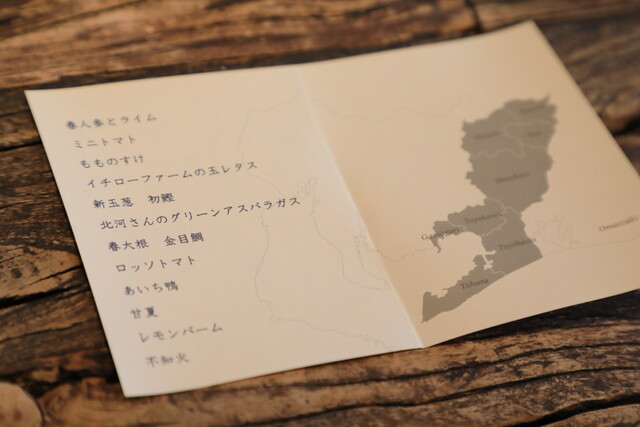 春人参とライム
ミニトマト
もものすけ
イチローファームの玉レタス
新玉葱 初鰹
北河さんのグリーンアスパラガス
春大根 金目鯛
ロッソトマト
あいち鴨
甘夏
レモンバーム
不知火
Shinshiro
Toyokawa
Gamagori
Toyohashi
Tahara
Omaezaki